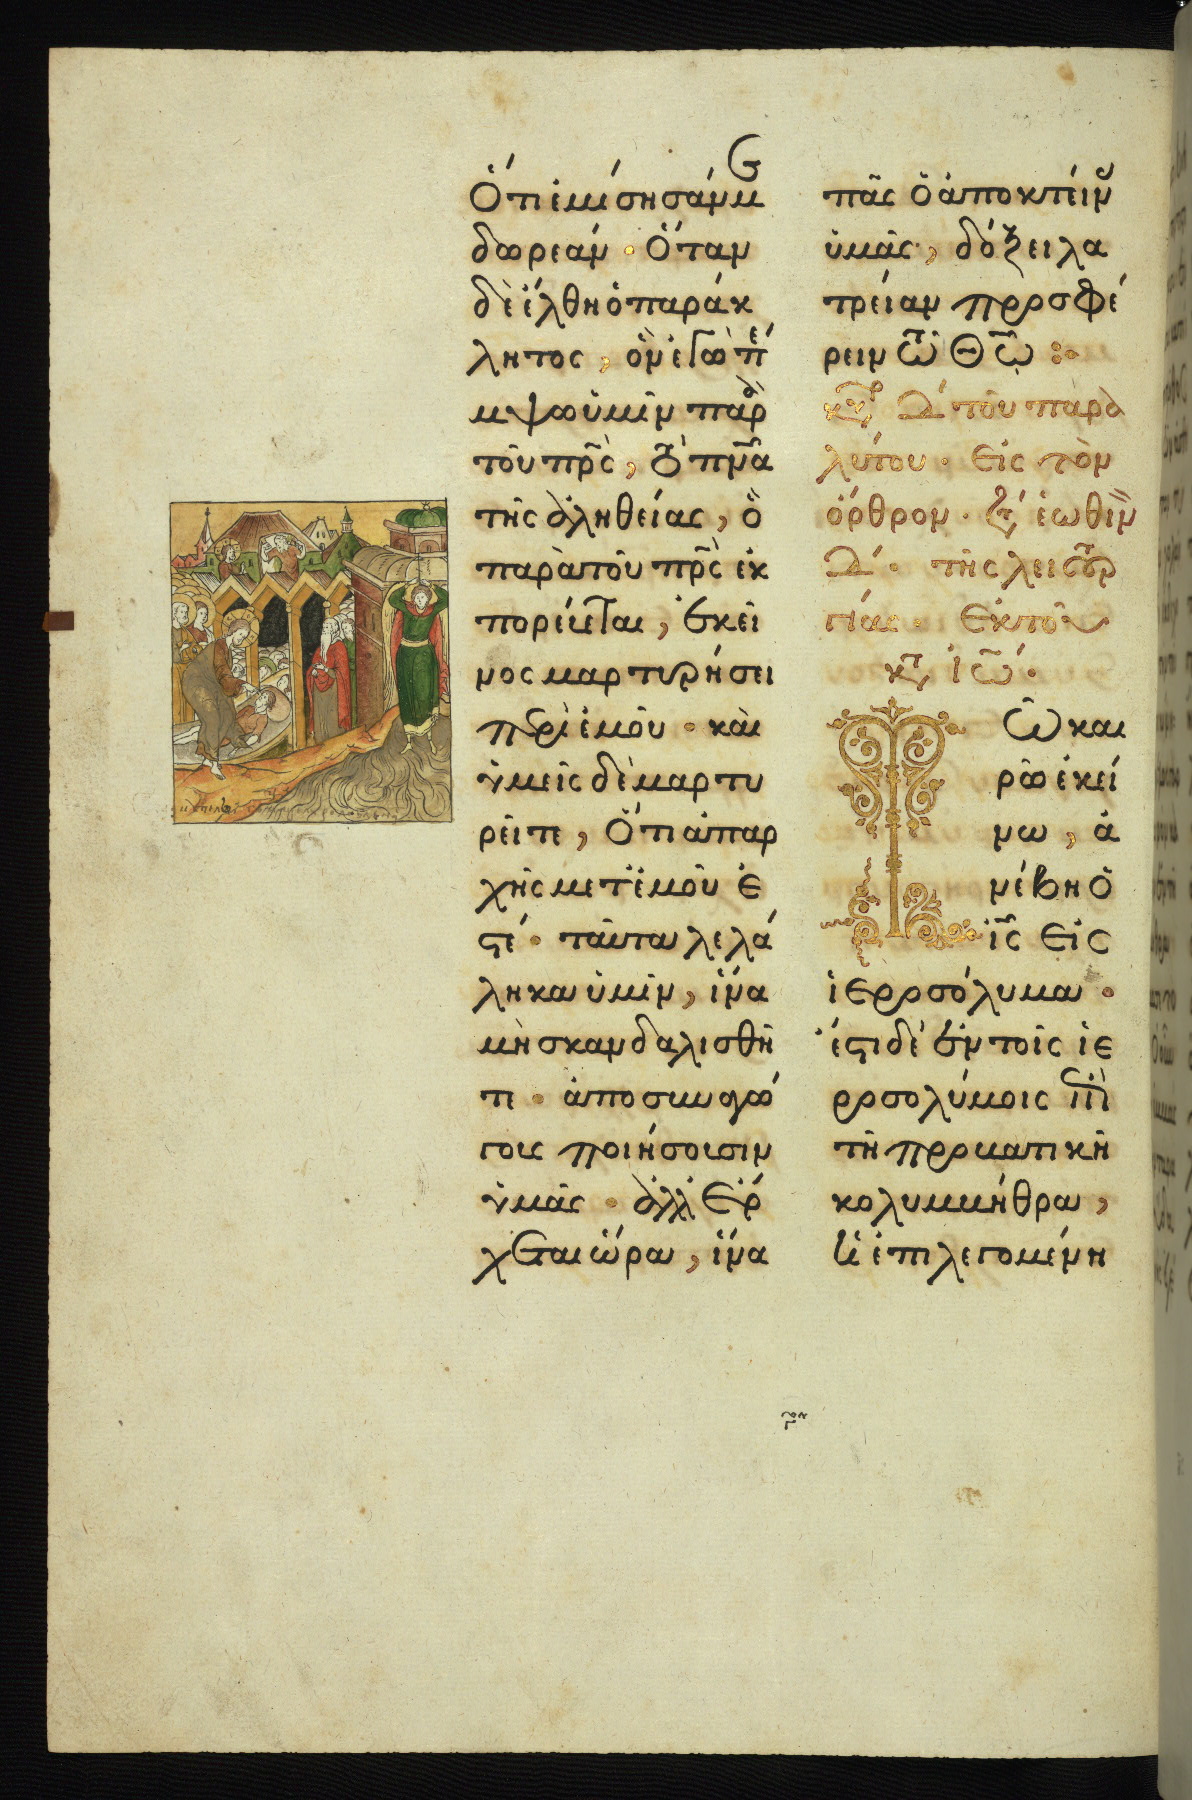 Ὅτι ἐμίσησάν με
δωρεάν · Ὅταν
δὲ ἔλθη ὁ παράκ
λητος, ὃν ἐγὼ πέ
μψω ὑμῖν παρὰ
τοῦ πρς, τὸ πνα
τῆς ἀληθείας, ὃ
παρὰ τοῦ πρς ἐκ
πορεύεται, Ἐκεῖ
νος μαρτυρήσει
περὶ ἐμοῦ · καὶ
ὑμεῖς δὲ μαρτυ
ρεῖτε, Ὅτι ἀπαρ
χῆς μετ' ἐμοῦ ἐ
στέ · ταῦτα λελά
ληκα ὑμῖν, ἵνα
μὴ σκανδαλισθῆ
τε · ἀποσυναγώ
γους ποιήσουσιν
ὑμᾶς · ἀλλ' Ἐρ
χεται ὥρα, ἵνα
πᾶς ὁ ἀποκτείνων
ὑμᾶς, δόξει λα
τρείαν προσφέ
ρειν τῶ Θῶ
κυ Δ τοῦ παρα
λύτου · Εἰς τὸν
ὄρθρον · ἐωθινὸν
Δ · τῆς λειτουρ
γίας · Ἐκ τοῦ
κτ Ἰω ·
Τῶ και
ρῶ ἐκεί
νω, ἀ
νέβη ὁ
ις Εἰς
ἱεροσόλυμα ·
ἔστι δὲ ἐν τοῖς ἱε
ροσολύμοις ἐπὶ
τῆ προβατικῆ
κολυμβήθρα,
ἡ ἐπιλεγομένη